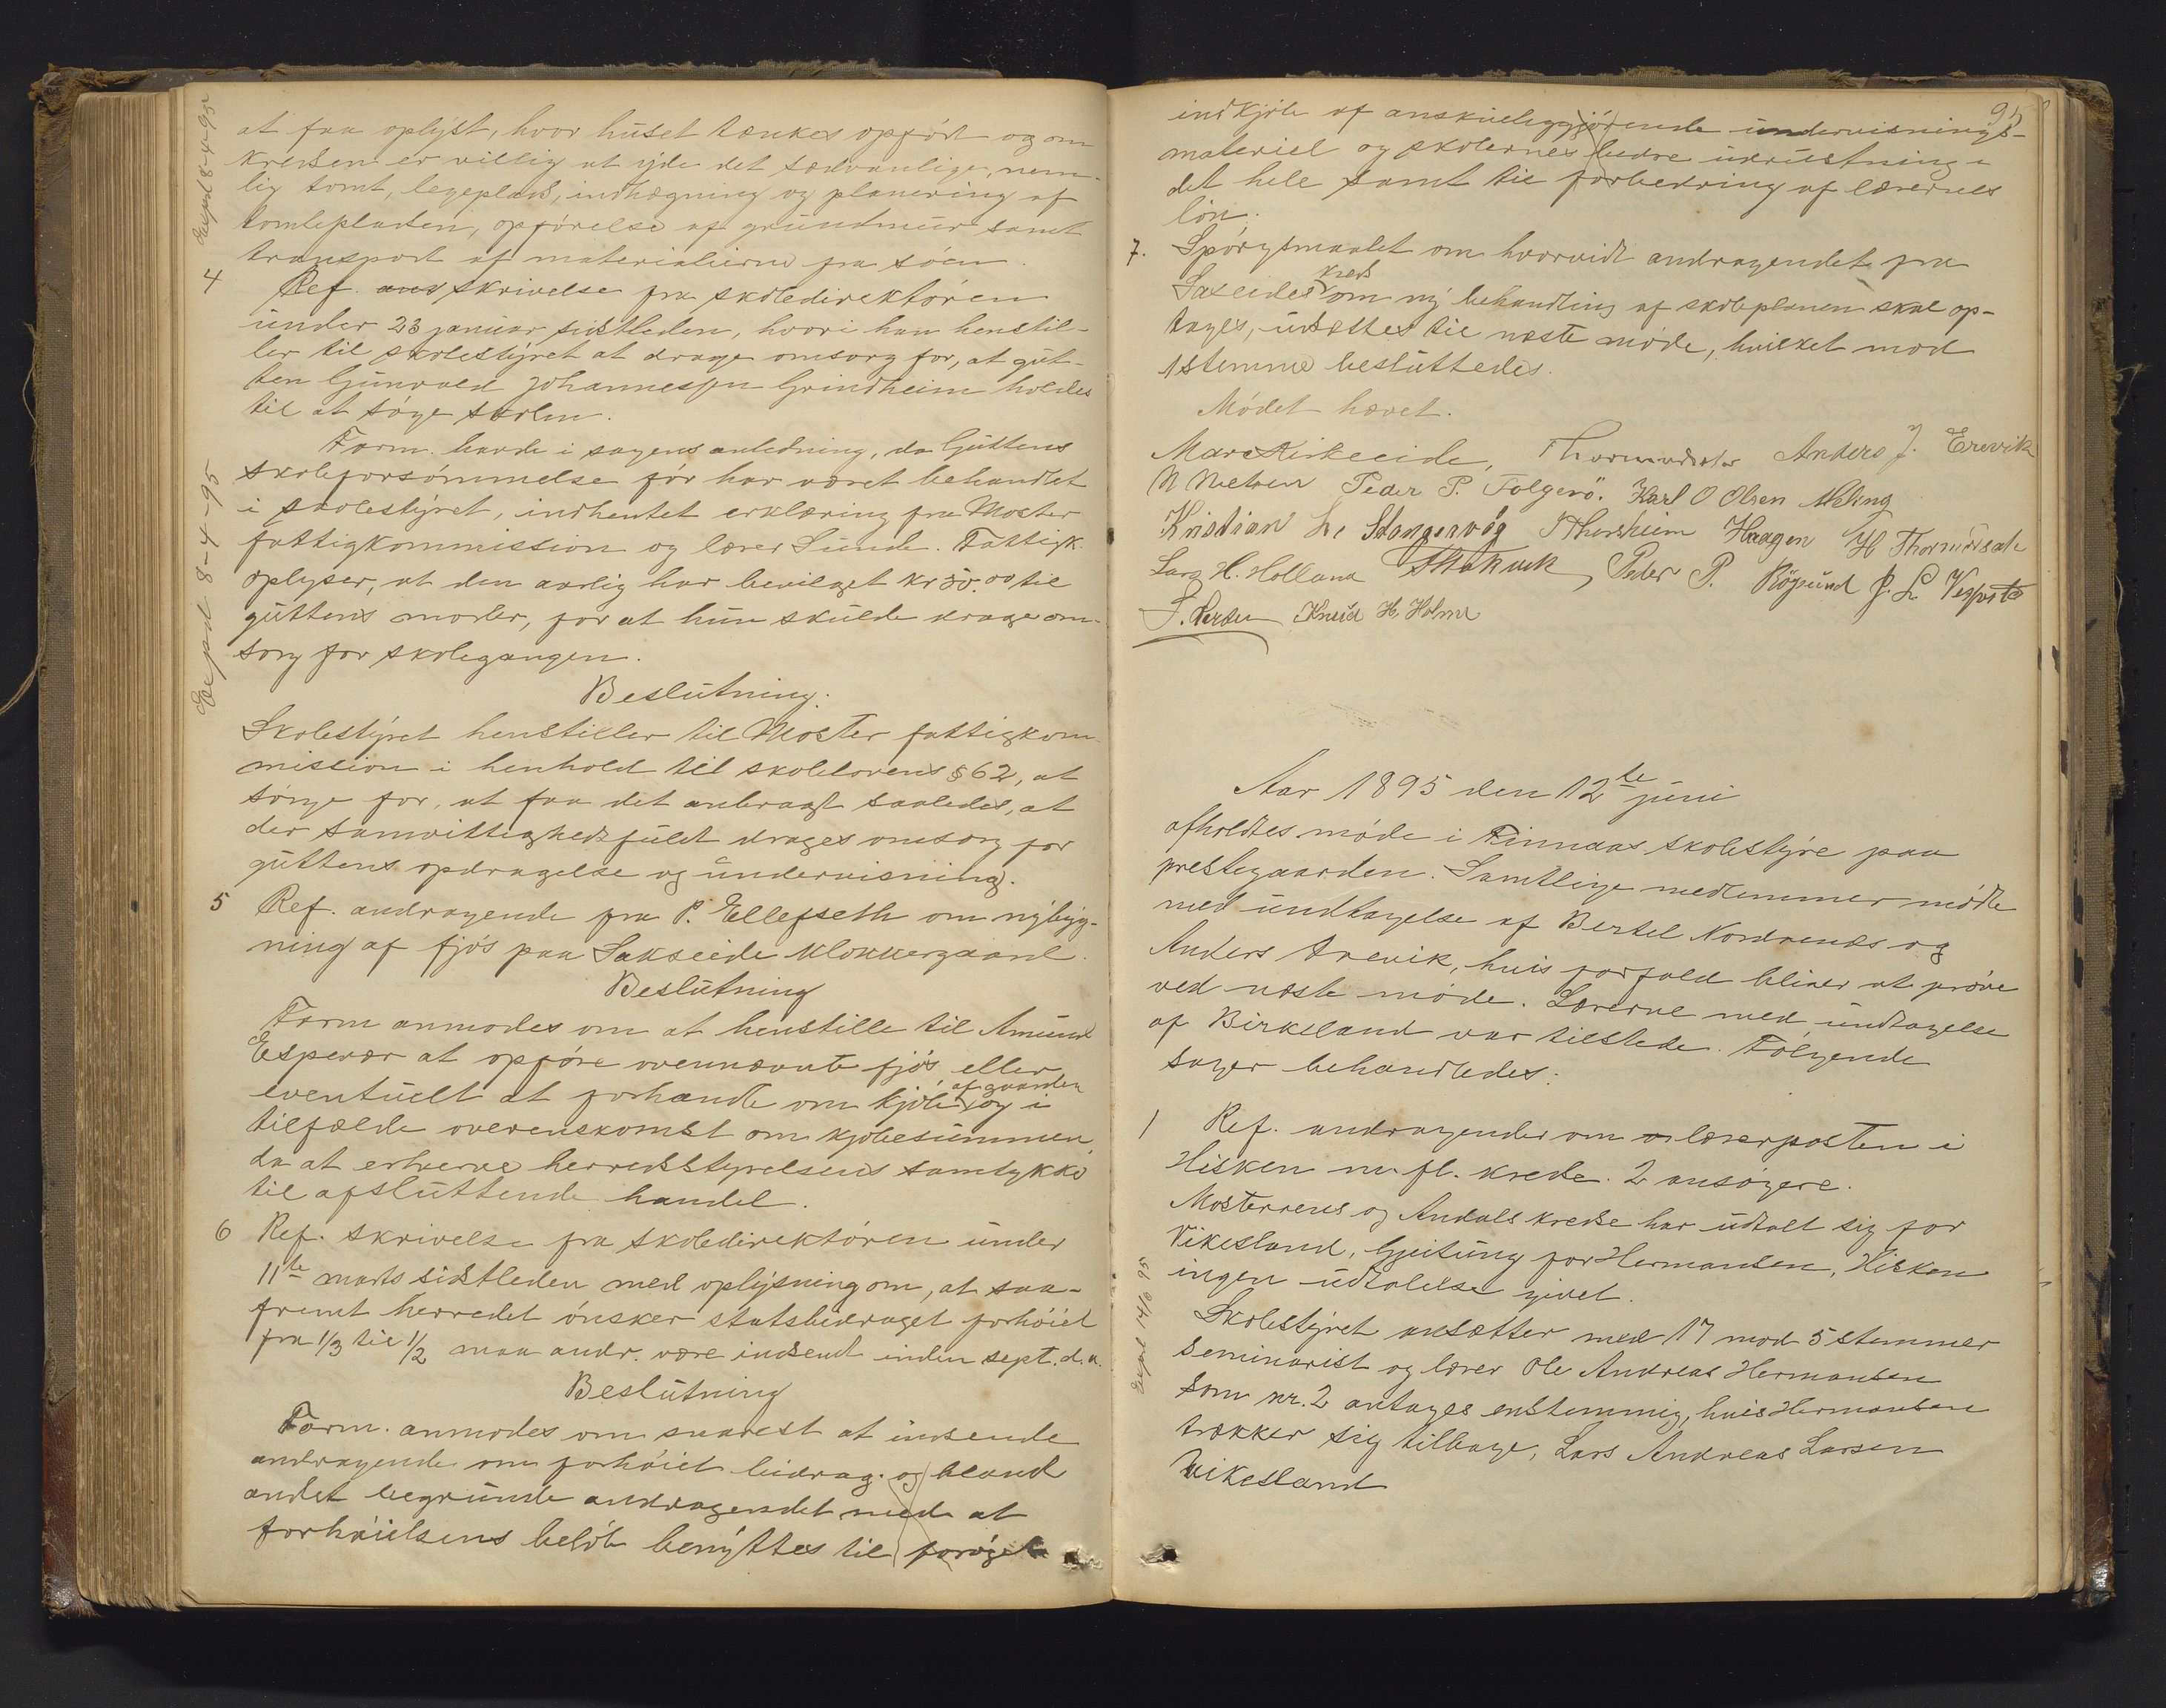 Expd 8-4-95
at faa oplyst, hvor huset tænkes opført og om
kredsen er villig at yde det sædvanlige, nem-
lig tomt, legeplads, indhægning og planering af
tomtepladsen, opførelse af grundmur samt
transport af materialierne fra søen.
4 Ref. skrivelse fra skoledirektøren
under 23 januar sidstleden, hvori han henstil-
ler til skolestyret at drage omsorg for, at gut-
ten Gunvald Johannessen Grindheim holdes
til at søge skolen.
Form. havde i sagens anledning, da Guttens
skoleforsømmelse før har været behandlet
i skolestyret, indhentet erklæring fra Moster
fattigkommission og lærer Sunde. Fattigk.
oplyser, at den aarlig har bevilget kr 50.00 til
guttens moder, for at hun skulde drage om-
sorg for skolegangen.
Expd 8-4-95
Beslutning.
Skolestyret henstiller til Moster fattigkom-
mission i henhold til skolelovens § 62, at
sørge for, at faa det anbragt saaledes, at
der samvittighedsfuldt drages omsorg for
guttens opdragelse og undervisning.
5 Ref. andragende fra P. Ellefseth om nybyg-
ning af fjøs paa Sakseide klokkergaard.
Beslutning
Form anmodes om at henstille til Amund
Espevær at opføre ovennævnte fjøs eller
eventuelt at forhandle om kjøb af gaarden og i
tilfælde overenskomst om kjøbesummen
da at erhverve herredsstyrelsens samtykke
til afsluttende handel.
6 Ref. skrivelse fra skoledirektøren under
11te marts sidstleden med oplysning om, at saa-
fremt herredet ønsker statsbidraget forhøiet
fra 1/3 til 1/2 maa andr. være indsendt inden sept. d.a.
Beslutning
Form. anmodes om snarest at indsende
andragende om forhøiet bidrag og bland
andet begrunde andragendet med at
forhøielsens beløb benyttes til forøget
95
indkjøb af anskueliggjørende undervisnings-
materiel og skolernes bedre udrustning i
det hele samt til forbedring af lærernes
løn.
7. Spørgsmaalet om hvorvidt andragendet fra
Saxeides kreds om ny behandling af skoleplanen skal op-
tages, udsættes til næste møde, hvilket mod
1 stemme besluttedes.
Mødet hævet.
Anders J. Erevik
N Nielsen Peder P. Folgerø. Karl O Olsen Meling
Kristian L. Stangervåg T Thorsheim Haagen H Thormodsæte
Lars H. Holland Peder P. Røgsund J. L. Vespestad
Knud H. Holme
Aar 1895 den 12te juni
afholdtes møde i Finnaas skolestyre paa
prestegaarden. Samtlige medlemmer mødte
med undtagelse af Bertel Nordnæs og
Anders Arevik, hvis forfald bliver at prøve
ved næste møde. Lærerne med undtagelse
af Birkeland var tilstede. Følgende
sager behandledes:
1 Ref. andragender om lærerposten i
Hisken m. fl. kredse. 2 ansøgere.
Mosterøens og Andals kredse har udtalt sig for
Vikesland, Gjeitung for Hermansen, Hisken
ingen udtalelse givet.
Expd 14/6 95
Skolestyret ansætter med 17 mod 5 stemmer
seminarist og lærer Ole Andreas Hermansen
Som nr. 2 antages enstemmig, hvis Hermansen
trækker sig tilbage, Lars Andreas Larsen
Vikesland